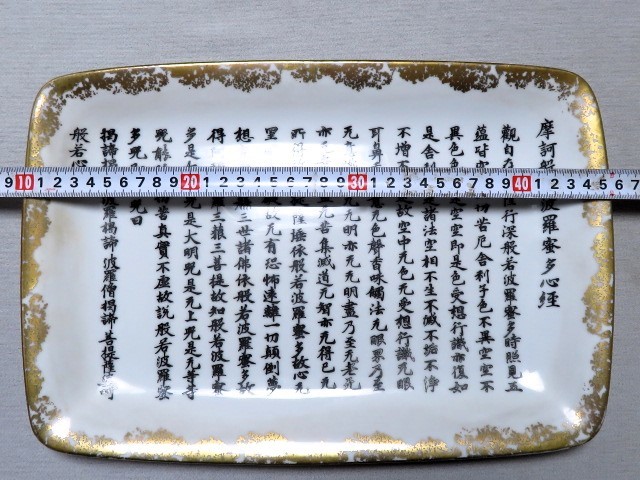 摩訶般 波羅蜜多心経
觀自在 行深般若波羅蜜多時照見五
蘊皆空 切苦厄舍利子色不異空空不
異色色 空空即是色受想行識亦復如
是舍利 諸法空相不生不滅不垢不淨
不增不 故空中无色无受想行識无眼
耳鼻 无色聲香味觸法无眼界乃至
无意 无无明亦无无明盡乃至无老死
亦无 无苦集滅道无智亦无得已无
所得 薩埵依般若波羅蜜多故心无
罣 故无有恐怖遠離一切顛倒夢
想 三世諸佛依般若波羅蜜多故
得 三藐三菩提故知般若波羅蜜
多是 咒是大明咒是无上咒是无等等
咒能 苦真實不虛故說般若波羅蜜
多咒 咒曰
揭諦揭 波羅揭諦 波羅僧揭諦 菩提薩婆訶
般若心
9 10 1 2 3 4 5 6 7 8 9 20 1 2 3 4 5 6 7 8 9 30 1 2 3 4 5 6 7 8 9 40 1 2 3 4 5 6 7